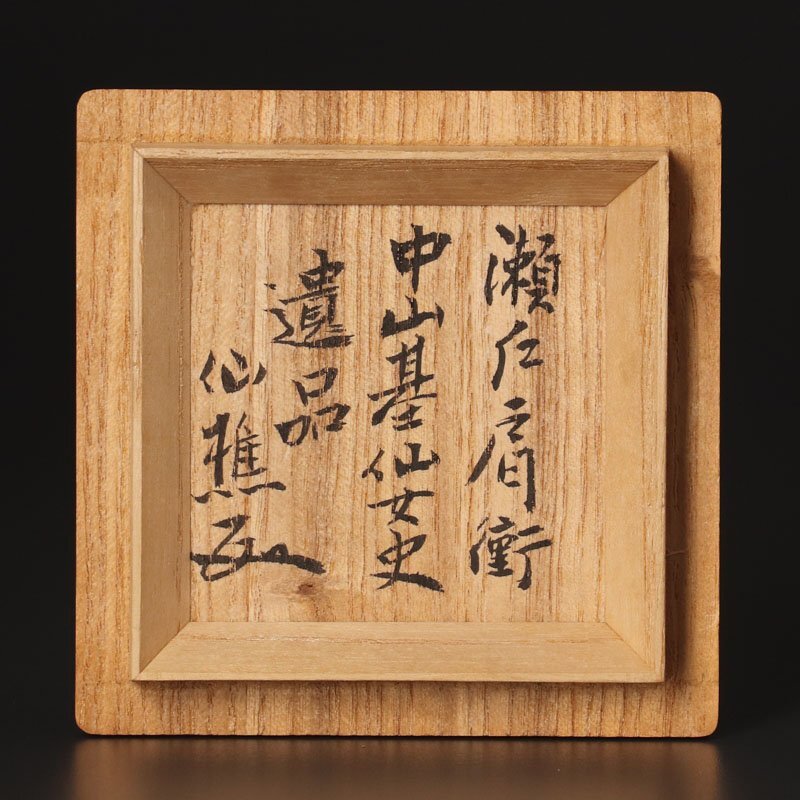 瀬戸肩衝
中山基仙女史
遺品
仙樵